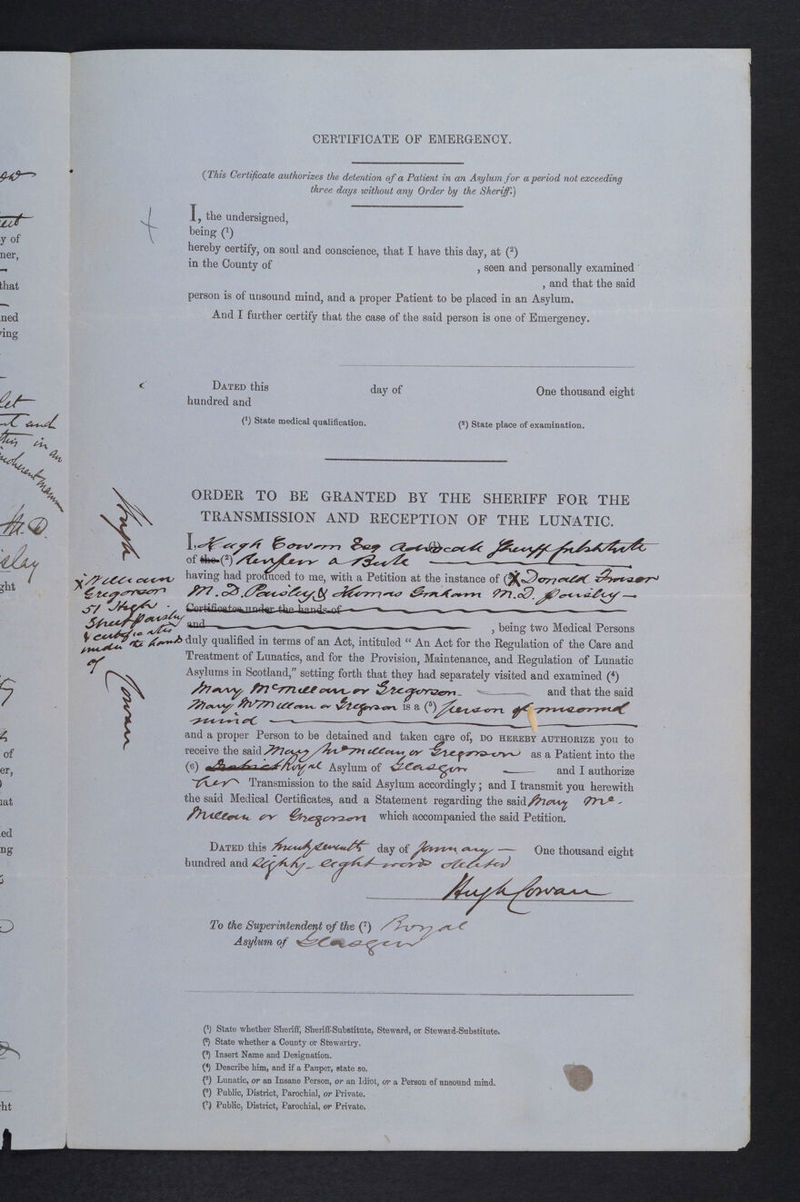 CERTIFICATE OF EMERGENCY.
(This Certificate authorizes the detention of a Patient in an Asylum for a period not exceeding
three days without any Order by the Sheriff.)
I, the undersigned,
being (¹)
hereby certify, on soul and conscience, that I have this day, at (²)
in the County of , seen and personally examined
, and that the said
person is of unsound mind, and a proper Patient to be placed in an Asylum.
And I further certify that the case of the said person is one of Emergency.
DATED this day of One thousand eight
hundred and
(¹) State medical qualification. (²) State place of examination.
ORDER TO BE GRANTED BY THE SHERIFF FOR THE
TRANSMISSION AND RECEPTION OF THE LUNATIC.
I, Hugh Cowan Esq Advocate Sheriff Substitute
of the (²) Renfrew & Bute
having had produced to me, with a Petition at the instance of (³) x Donald Fraser
M.D. Paisley & Thomas Graham M.D. Paisley
Certificates under the hands of
and , being two Medical Persons
duly qualified in terms of an Act, intituled “ An Act for the Regulation of the Care and
Treatment of Lunatics, and for the Provision, Maintenance, and Regulation of Lunatic
Asylums in Scotland,” setting forth that they had separately visited and examined (⁴)
Mary McMillan or Gregorson and that the said
Mary McMillan or Gregorson is a (⁵) person of unsound
mind
and a proper Person to be detained and taken care of, DO HEREBY AUTHORIZE you to
receive the said Mary McMillan or Gregorson as a Patient into the
(⁶) District Royal Asylum of Glasgow and I authorize
her Transmission to the said Asylum accordingly; and I transmit you herewith
the said Medical Certificates, and a Statement regarding the said Mary Mc-
Millan or Gregorson which accompanied the said Petition.
DATED this twenty seventh day of January One thousand eight
hundred and Eighty-eight words deleted
Hugh Cowan
To the Superintendent of the (⁷) Royal
Asylum of Glasgow
(¹) State whether Sheriff, Sheriff-Substitute, Steward, or Steward-Substitute.
(²) State whether a County or Stewartry.
(³) Insert Name and Designation.
(⁴) Describe him, and if a Pauper, state so.
(⁵) Lunatic, or an Insane Person, or an Idiot, or a Person of unsound mind.
(⁶) Public, District, Parochial, or Private.
(⁷) Public, District, Parochial, or Private.
Hugh
x William
Gregorson
57 High
Street Paisley
& certificates
under the hands
of
Cowan
y of
ner,
that
ned
ing
let
and
this in an
incoherent manner
M.D.
ght
of
er,
at
ed
ng
ht